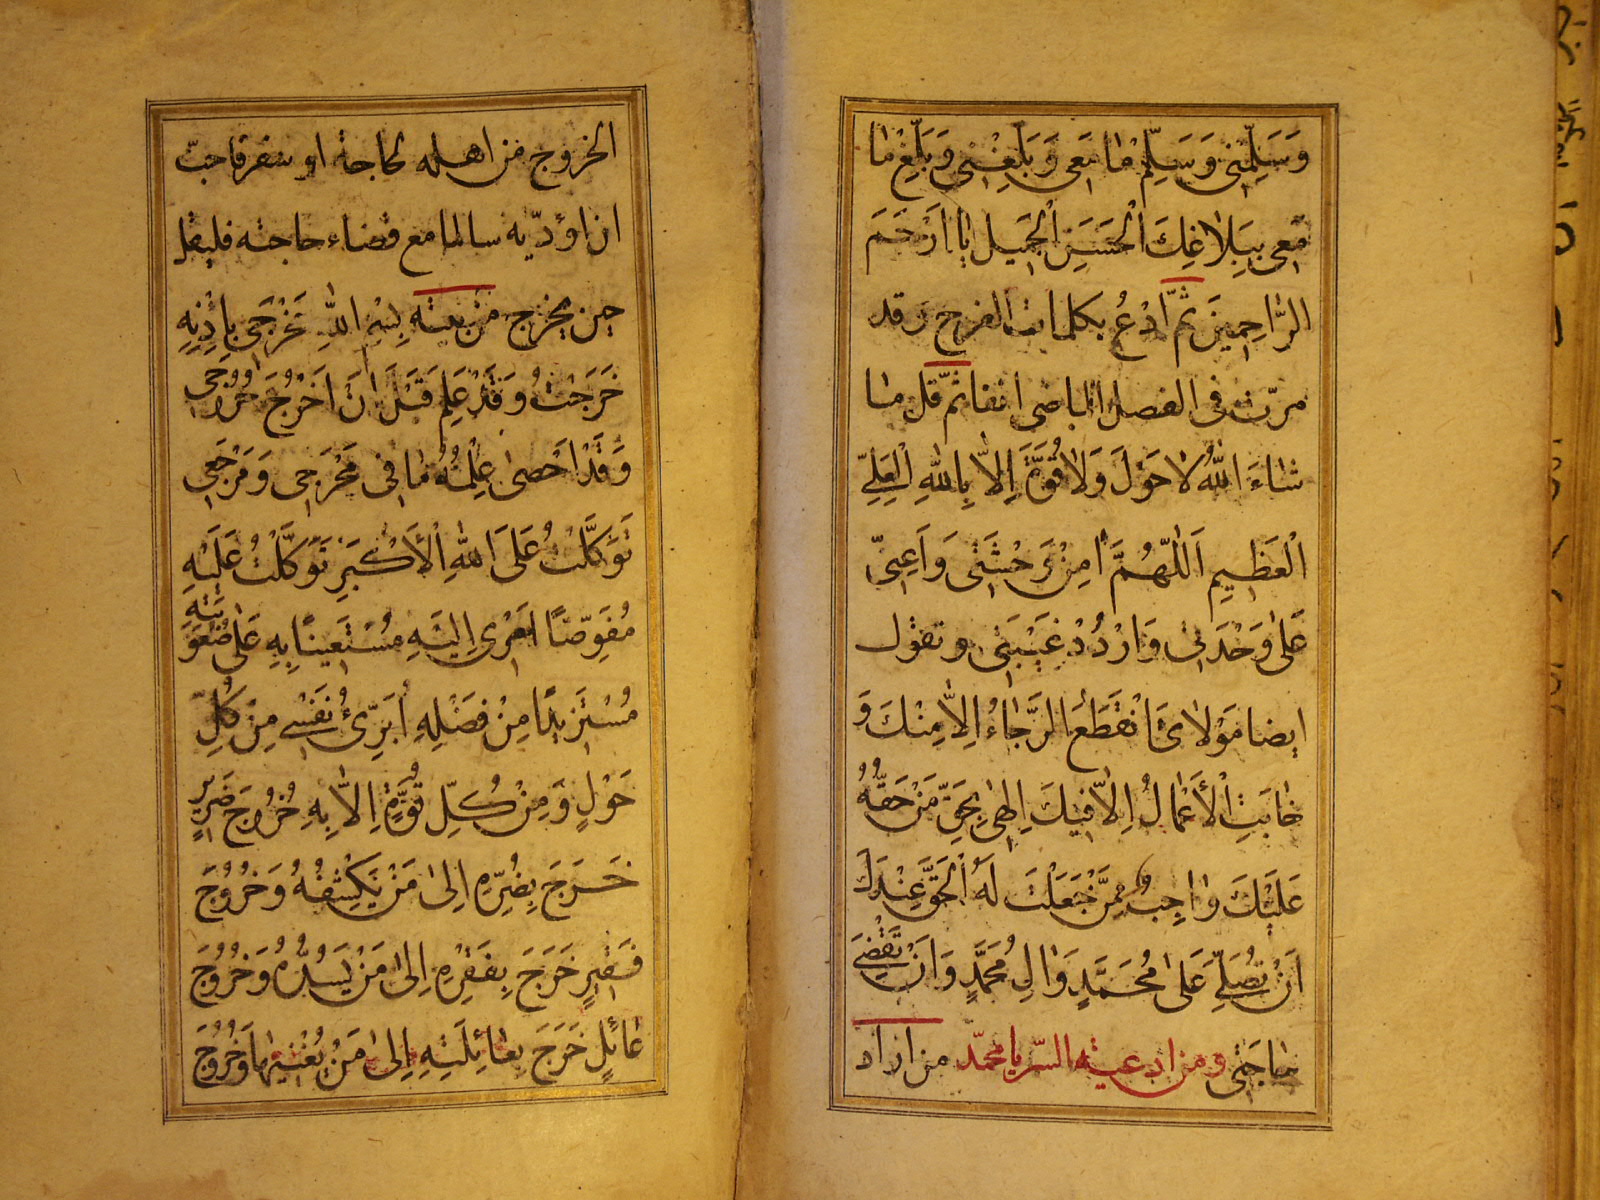 وَسَلِّمْنى وَسَلِّمْ مٰا مَعى وَبَلِّغْنى وَبَلِّغْ مٰا
مَعى بِبَلاٰغِكَ الْحَسَنِ الْجَميلِ يٰا اَرْحَمَ
الرّٰاحِمينَ ثمّ اُدْعُ بكلمات الفرج وقد
مرّت فى الفصل الماضى انفا ثمّ قل مٰا
شٰاءَ اللّٰهُ لاٰ حَوْلَ وَلاٰ قُوَّةَ اِلاّٰ بِاللّٰهِ الْعَلِىِّ
الْعَظيمِ اَللّٰهُمَّ اٰمِنْ وَحْشَتى وَاَعِنّى
عَلىٰ وَحْدَتى وَارْدُدْ غَيْبَتى وتقول
ايضا مَوْلاٰىَ انْقَطَعَ الرَّجٰاءُ اِلاّٰ مِنْكَ وَ
خٰابَتِ الْأَعْمٰالُ اِلاّٰ فيكَ اِلٰهى بِحَقِّ مَنْ حَقُّهُ
عَلَيْكَ وٰاجِبٌ مِمَّنْ جَعَلْتَ لَهُ الْحَقَّ عِنْدَكَ
اَنْ تُصَلِّىَ عَلىٰ مُحَمَّدٍ وَاٰلِ مُحَمَّدٍ وَاَنْ تَقْضِىَ
حٰاجَتى ومن ادعيته السّر يا محمّد من اراد
الخروج من اهله لحاجة او سفر فاحبّ
ان اؤدّيه سالما مع قضاء حاجته فليقل
حين يخرج من بيته بِسْمِ اللّٰهِ مَخْرَجى بِاِذْنِهِ
خَرَجْتُ وَقَدْ عَلِمَ قَبْلَ اَنْ اَخْرُجَ خُرُوجى
وَقَدْ اَحْصىٰ عِلْمُهُ مٰا فى مَخْرَجى وَمَرْجَعى
تَوَكَّلْتُ عَلَى اللّٰهِ الْأَكْبَرِ تَوَكَّلْتُ عَلَيْهِ
مُفَوِّضًا اَمْرى اِلَيْهِ مُسْتَعينًا بِهِ عَلىٰ شُؤُنِهِ
مُسْتَزيدًا مِنْ فَضْلِهِ اُبَرِّئُ نَفْسى مِنْ كُلِّ
حَوْلٍ وَمِنْ كُلِّ قُوَّةٍ اِلاّٰ بِهِ خُرُوجَ ضَريرٍ
خَرَجَ بِضُرِّهِ اِلىٰ مَنْ يَكْشِفُهُ وَخُرُوجَ
فَقيرٍ خَرَجَ بِفَقْرِهِ اِلىٰ مَنْ يَسُدُّهُ وَخُرُوجَ
عٰائِلٍ خَرَجَ بِعٰائِلَتِهِ اِلىٰ مَنْ يُغْنيهٰا وَخُرُوجَ